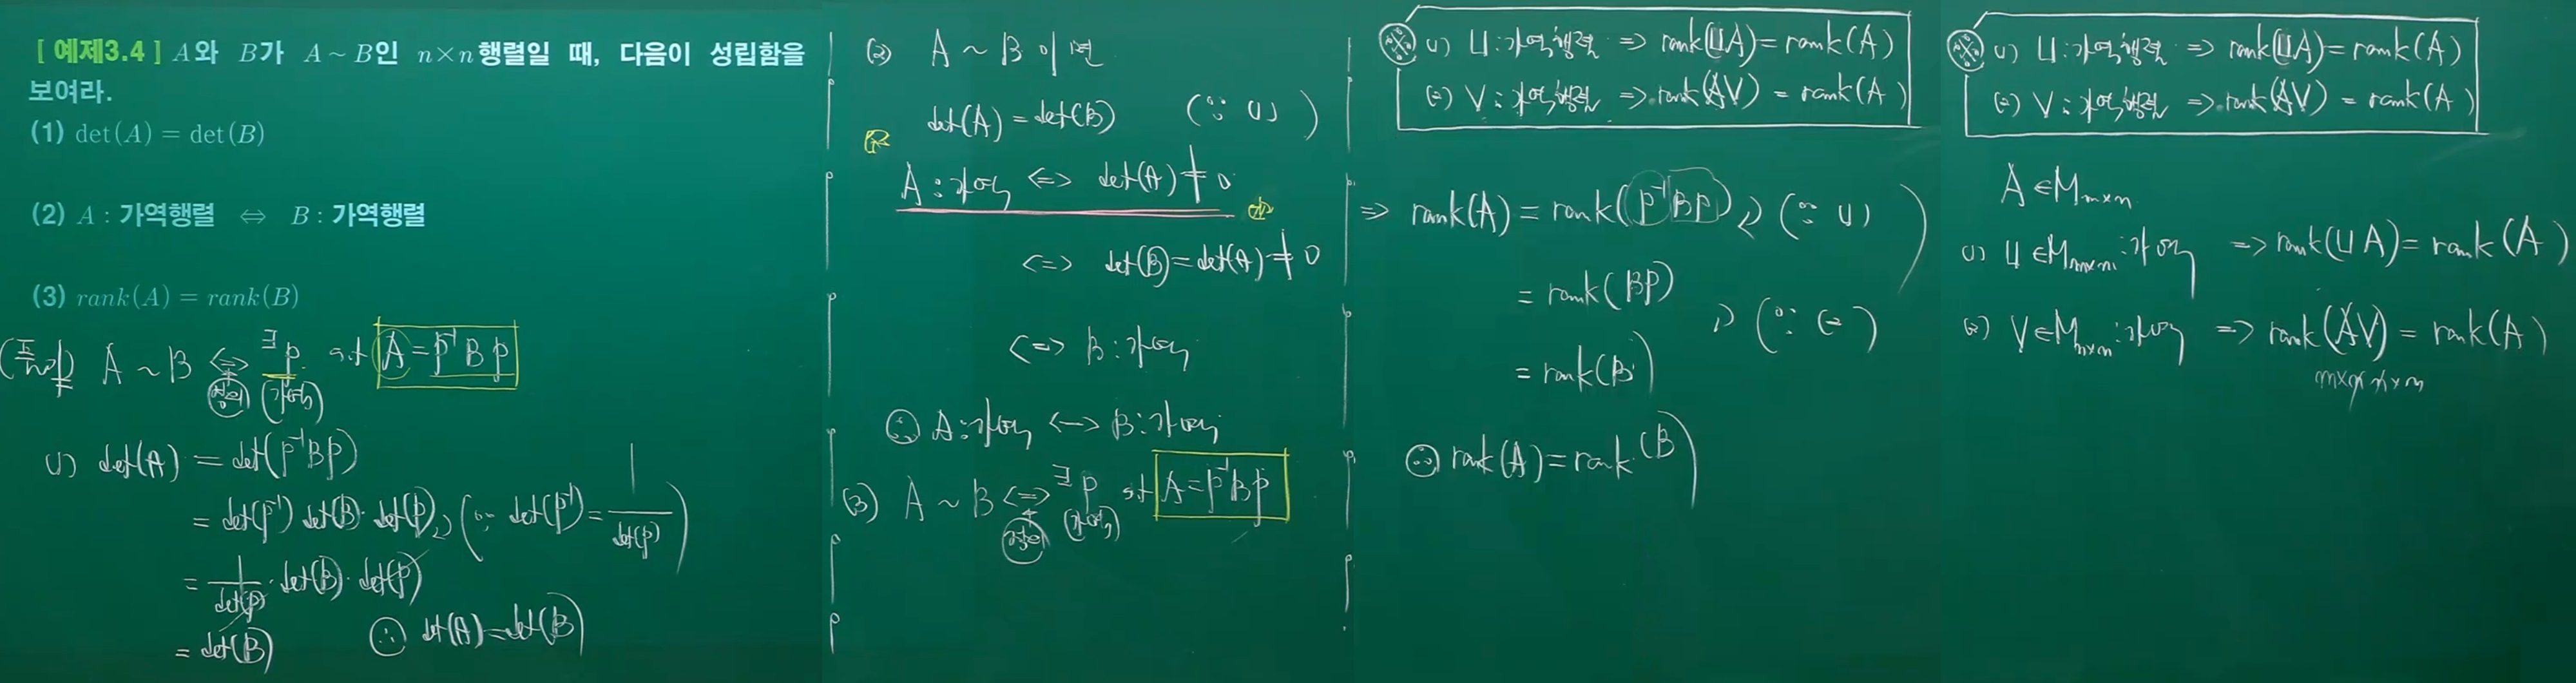 [ 예제3.4 ] A와 B가 A ~ B인 n×n행렬일 때, 다음이 성립함을
보여라.
(1) det(A) = det(B)
(2) A : 가역행렬 ⇔ B : 가역행렬
(3) rank(A) = rank(B)
(풀이) A ~ B ⇔ ∃P s.t A = P⁻¹BP
정의 (가역)
(1) det(A) = det(P⁻¹BP)
= det(P⁻¹) det(B) · det(P) (∵ det(P⁻¹) = 1/det(P))
= 1/det(P) · det(B) · det(P)
= det(B) ∴ det(A) = det(B)
(2) A ~ B 이면
det(A) = det(B) (∵ (1))
A : 가역 ⇔ det(A) ≠ 0
⇔ det(B) = det(A) ≠ 0
⇔ B : 가역
∴ A : 가역 ⟷ B : 가역
(3) A ~ B ⇔ ∃P s.t A = P⁻¹BP
정의 (가역)
(1) U : 가역행렬 ⇒ rank(UA) = rank(A)
(2) V : 가역행렬 ⇒ rank(AV) = rank(A)
⇒ rank(A) = rank(P⁻¹BP) (∵ (1))
= rank(BP)
(∵ (2))
= rank(B)
∴ rank(A) = rank(B)
(1) U : 가역행렬 ⇒ rank(UA) = rank(A)
(2) V : 가역행렬 ⇒ rank(AV) = rank(A)
A ∈ M m×n
(1) U ∈ M m×m : 가역 ⇒ rank(UA) = rank(A)
(2) V ∈ M n×n : 가역 ⇒ rank(AV) = rank(A)
m×n n×n